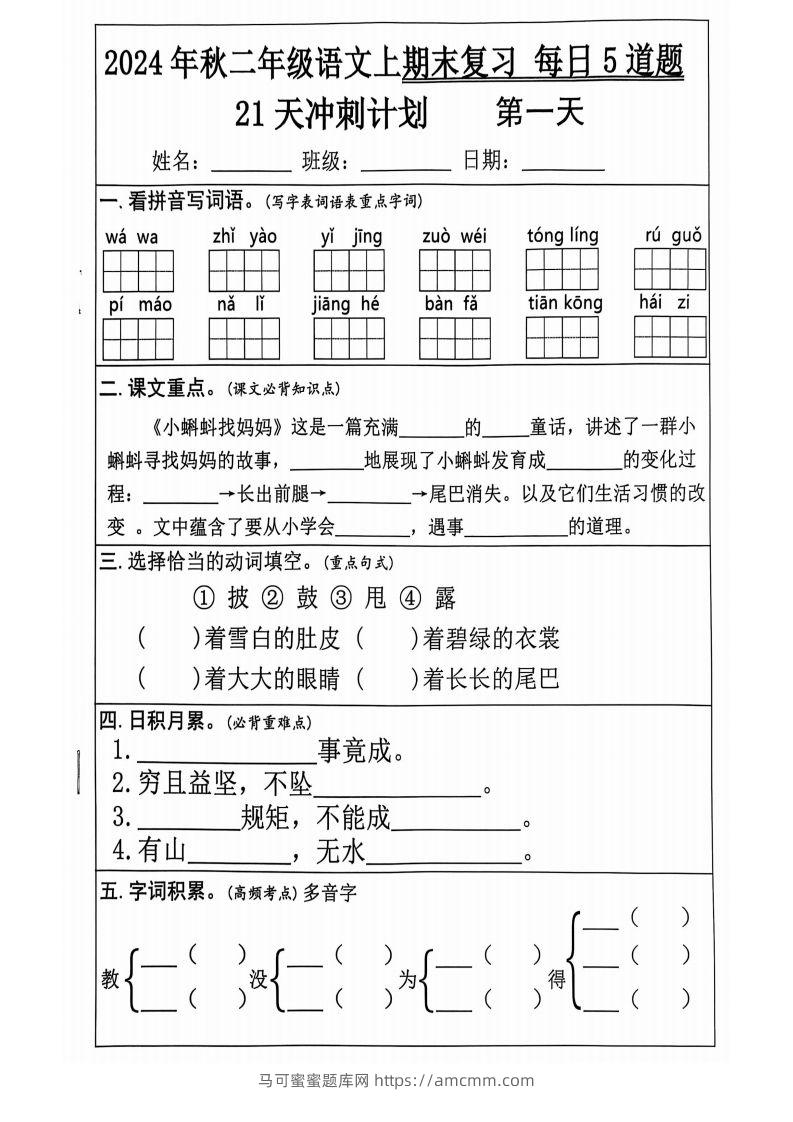 2024年秋二年级语文上期末复习 每日5道题
21天冲刺计划 第一天
姓名：________ 班级：_________ 日期：________
一.看拼音写词语。(写字表词语表重点字词)
wá wa zhǐ yào yǐ jīng zuò wéi tóng líng rú guǒ
pí máo nǎ lǐ jiāng hé bàn fǎ tiān kōng hái zi
二.课文重点。(课文必背知识点)
《小蝌蚪找妈妈》这是一篇充满______的_____童话，讲述了一群小
蝌蚪寻找妈妈的故事，_______地展现了小蝌蚪发育成_______的变化过
程：_______→长出前腿→________→尾巴消失。以及它们生活习惯的改
变 。文中蕴含了要从小学会_______，遇事__________的道理。
三.选择恰当的动词填空。(重点句式)
① 披 ② 鼓 ③ 甩 ④ 露
( )着雪白的肚皮 ( )着碧绿的衣裳
( )着大大的眼睛 ( )着长长的尾巴
四.日积月累。(必背重难点)
1.______________事竟成。
2.穷且益坚，不坠_____________。
3.________规矩，不能成__________。
4.有山________，无水____________。
五.字词积累。(高频考点)多音字
___ ( )
___ ( ) ___ ( ) ___ ( ) ___ ( )
教 没 为 得
___ ( ) ___ ( ) ___ ( ) ___ ( )
马可蜜蜜题库网 https://amcmm.com